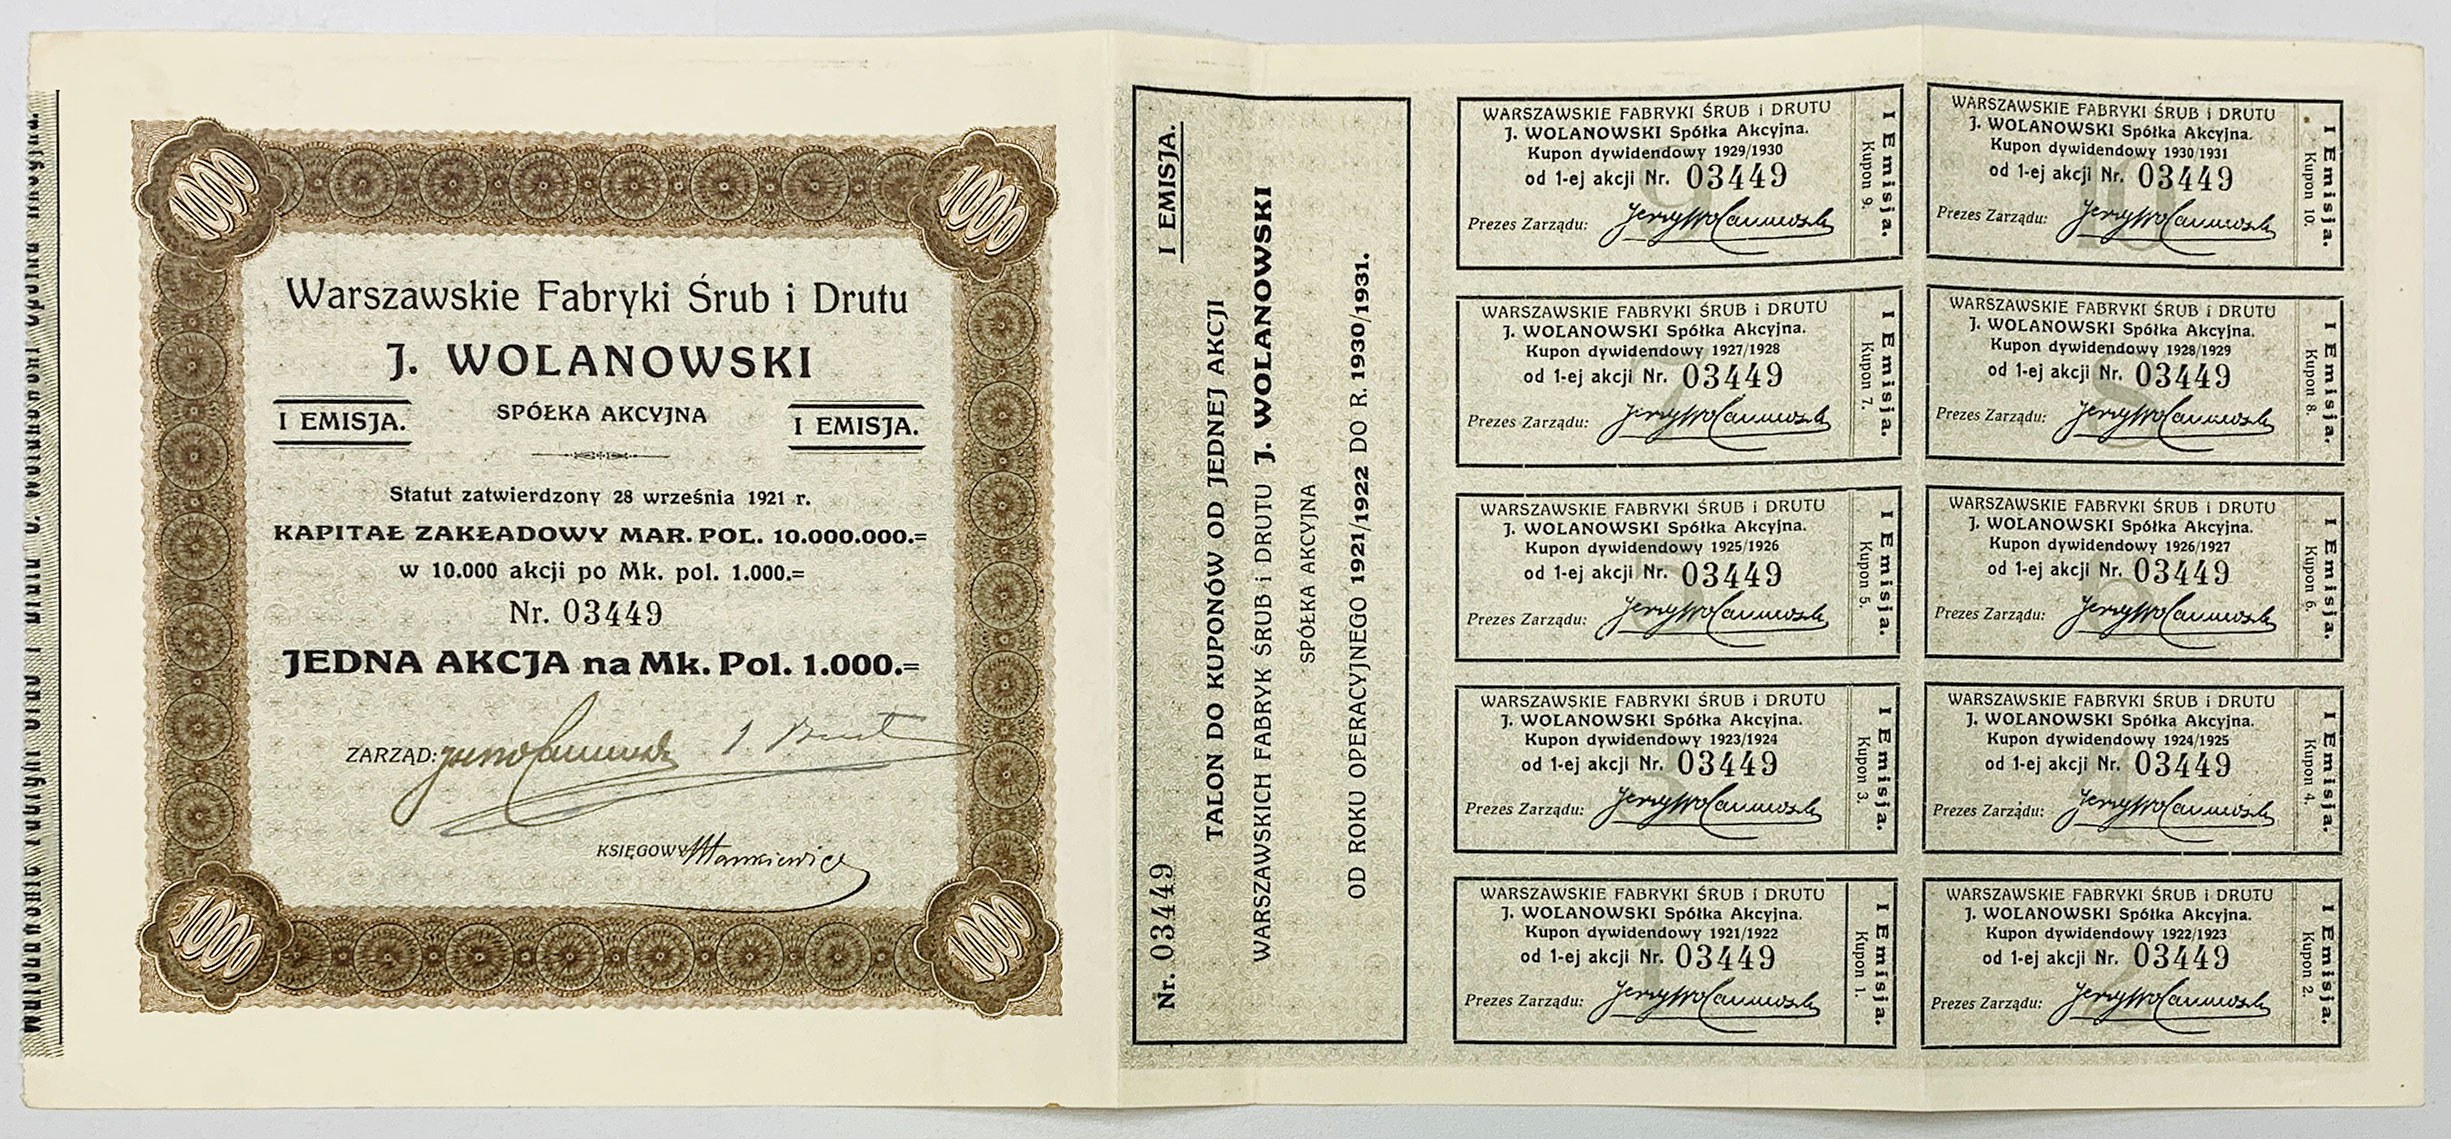 1000
1000
Warszawskie Fabryki Śrub i Drutu
J. WOLANOWSKI
SPÓŁKA AKCYJNA
I EMISJA.
I EMISJA.
Statut zatwierdzony 28 września 1921 r.
KAPITAŁ ZAKŁADOWY MAR. POL. 10.000.000.=
w 10.000 akcji po Mk. pol. 1.000.=
Nr. 03449
JEDNA AKCJA na Mk. Pol. 1.000.=
ZARZĄD:
KSIĘGOWY
1000
1000
Nr. 03449
I EMISJA.
TALON DO KUPONÓW OD JEDNEJ AKCJI
WARSZAWSKICH FABRYK ŚRUB i DRUTU J. WOLANOWSKI
SPÓŁKA AKCYJNA
OD ROKU OPERACYJNEGO 1921/1922 DO R. 1930/1931.
WARSZAWSKIE FABRYKI ŚRUB i DRUTU
J. WOLANOWSKI Spółka Akcyjna.
Kupon dywidendowy 1929/1930
od 1-ej akcji Nr. 03449
Prezes Zarządu:
I Emisja.
Kupon 9.
9
WARSZAWSKIE FABRYKI ŚRUB i DRUTU
J. WOLANOWSKI Spółka Akcyjna.
Kupon dywidendowy 1930/1931
od 1-ej akcji Nr. 03449
Prezes Zarządu:
I Emisja.
Kupon 10.
10
WARSZAWSKIE FABRYKI ŚRUB i DRUTU
J. WOLANOWSKI Spółka Akcyjna.
Kupon dywidendowy 1927/1928
od 1-ej akcji Nr. 03449
Prezes Zarządu:
I Emisja.
Kupon 7.
7
WARSZAWSKIE FABRYKI ŚRUB i DRUTU
J. WOLANOWSKI Spółka Akcyjna.
Kupon dywidendowy 1928/1929
od 1-ej akcji Nr. 03449
Prezes Zarządu:
I Emisja.
Kupon 8.
8
WARSZAWSKIE FABRYKI ŚRUB i DRUTU
J. WOLANOWSKI Spółka Akcyjna.
Kupon dywidendowy 1925/1926
od 1-ej akcji Nr. 03449
Prezes Zarządu:
I Emisja.
Kupon 5.
5
WARSZAWSKIE FABRYKI ŚRUB i DRUTU
J. WOLANOWSKI Spółka Akcyjna.
Kupon dywidendowy 1926/1927
od 1-ej akcji Nr. 03449
Prezes Zarządu:
I Emisja.
Kupon 6.
6
WARSZAWSKIE FABRYKI ŚRUB i DRUTU
J. WOLANOWSKI Spółka Akcyjna.
Kupon dywidendowy 1923/1924
od 1-ej akcji Nr. 03449
Prezes Zarządu:
I Emisja.
Kupon 3.
3
WARSZAWSKIE FABRYKI ŚRUB i DRUTU
J. WOLANOWSKI Spółka Akcyjna.
Kupon dywidendowy 1924/1925
od 1-ej akcji Nr. 03449
Prezes Zarządu:
I Emisja.
Kupon 4.
4
WARSZAWSKIE FABRYKI ŚRUB i DRUTU
J. WOLANOWSKI Spółka Akcyjna.
Kupon dywidendowy 1921/1922
od 1-ej akcji Nr. 03449
Prezes Zarządu:
I Emisja.
Kupon 1.
1
WARSZAWSKIE FABRYKI ŚRUB i DRUTU
J. WOLANOWSKI Spółka Akcyjna.
Kupon dywidendowy 1922/1923
od 1-ej akcji Nr. 03449
Prezes Zarządu:
I Emisja.
Kupon 2.
2